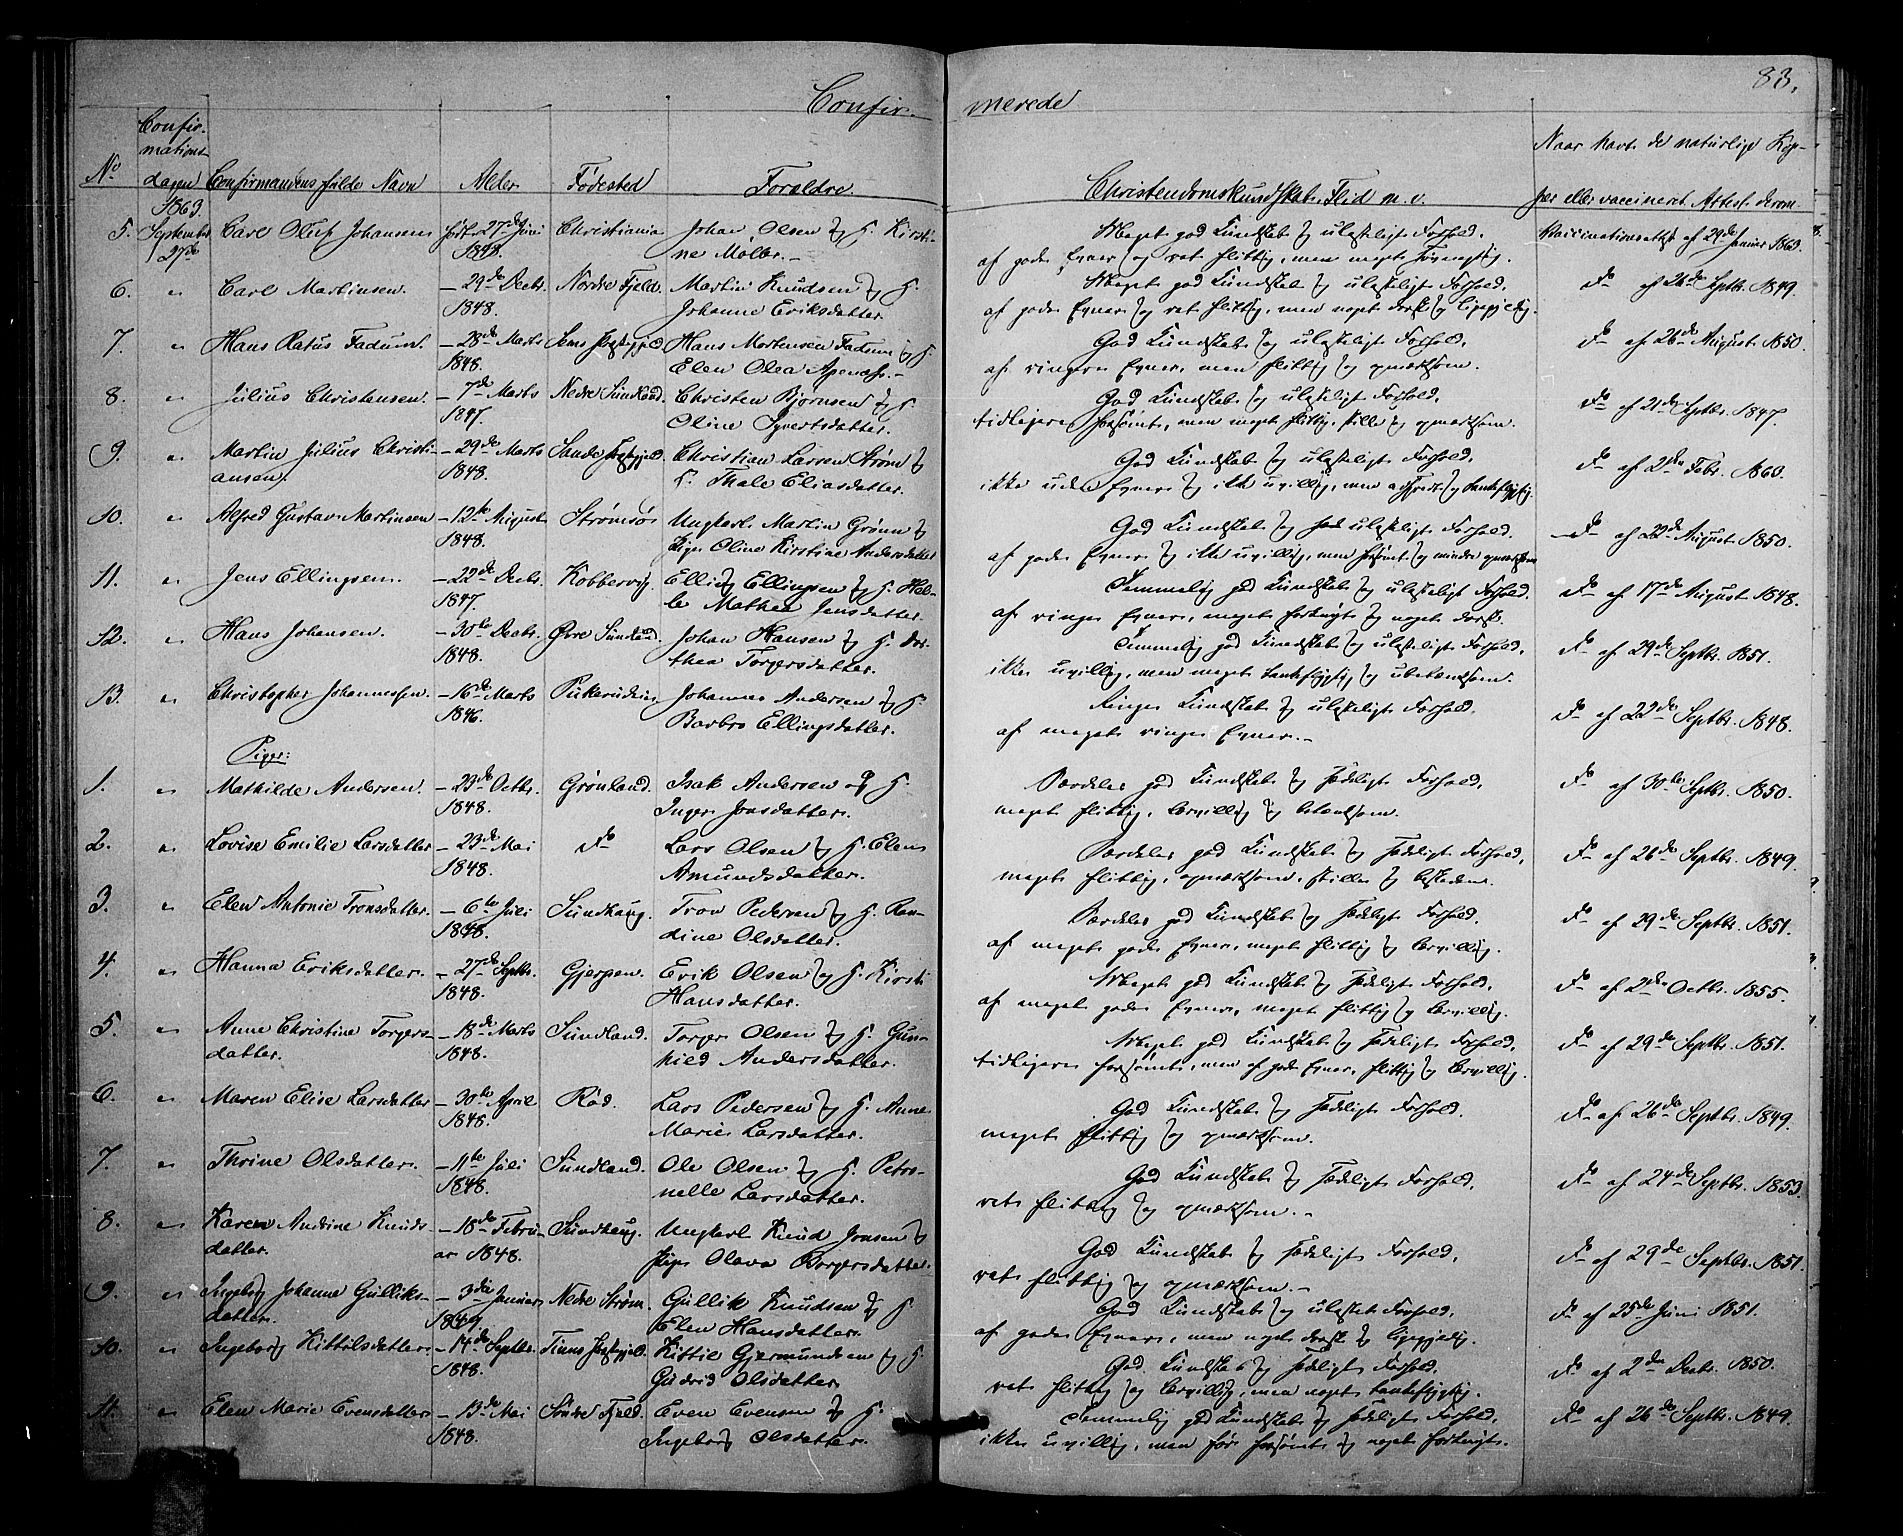 83.
Confir- merede
No
Confir-
mations-
dagen
Confirmandens fulde Navn
Alder
Fødested
Forældre
Christendomskundskab, Flid m. v.
Naar havt de naturlige Kop-
per eller vaccineret. Attest derom
1863.
5. September Carl Oluf Johansen født 27de Juni Christiania Johan Olsen og H. Kirsti- Meget god Kundskab og ulasteligt Forhold, Vaccinationsattest af 29de Januar 1863.
27de 1848. ne Molbr. af gode Evner og ret flittig, men meget
6. " Carl Martinsen. - 29de Decbr. Nordre Fjeld. Martin Knudsen og H. Meget god Kundskab og ulasteligt Forhold, do af 26de Septbr. 1849.
1848. Johanne Eriksdatter. af gode Evner og ret flittig, men noget dorsk og ligegyldig.
7. " Hans Ratus Fadum. - 28de Marts Sems Præstegjeld Hans Mortensen Fadum og H. God Kundskab og ulasteligt Forhold, do af 26de August 1850.
1848. Elen Olea af ringere Evner, men flittig og opmærksom.
8. " Julius Christensen. - 7de Marts Nedre Sundland. Christen Bjørnsen og H. God Kundskab og ulasteligt Forhold, do af 21de Septbr. 1847.
1847. Oline Syvertsdatter. tidligere forsømt, men meget flittig, stille og opmærksom.
9. " Martin Julius Christi- - 29de Marts Sande Præstegjeld. Christian Larsen Strøm og God Kundskab og ulasteligt Forhold, do af 21de Febr. 1860.
ansen. 1848. H. Thale Eliasdatter. ikke uden Evner og ikke uvillig, men adspredt og tankeflygtig.
10. " Alfred Gustav Martinsen - 12te August Strømsø Ungkarl Martin Grønn og God Kundskab og ulasteligt Forhold, do af 22de August 1850.
1848. Pige Oline Kirstine Andersdatter af gode Evner og ikke uvillig, men forsømt og mindre opmærksom
11. " Jens Ellingsen. - 22de Decbr. Kobbervig. Elling Ellingsen og H. Hel- Temmelig god Kundskab og ulasteligt Forhold, do af 17de August 1848.
1847. le Mathea Jensdatter. af ringe Evner, meget forknyt og noget dorsk.
12. " Hans Johansen. - 30te Decbr. Øvre Sundland. Johan Hansen og H. Dor- Temmelig god Kundskab og ulasteligt Forhold, do af 29de Septbr. 1851.
1848. thea Torgersdatter. ikke uvillig, men meget tankeflygtig og ubetænksom.
13. " Christopher Johannessen. - 16de Marts Pukerudeie Johannes Andersen og H. Ringe Kundskab og ulasteligt Forhold, do af 22de Septbr. 1848.
1846. Barbro Ellingsdatter. af meget ringe Evner.
Piger:
1. " Mathilde Andersen. - 23de Octbr. Grønland. Isak Andersen og H. Særdeles god Kundskab og sædeligt Forhold, do af 30te Septbr. 1850.
1848. Inger Jonsdatter. meget flittig, lærvillig og betænksom.
2. " Lovise Emilie Larsdatter - 23de Mai do Lars Olsen og H. Elen Særdeles god Kundskab og sædeligt Forhold, do af 26de Septbr. 1849.
1848. Amundsdatter. meget flittig, opmærksom, stille og beskeden.
3. " Elen Antonie Tronsdatter. - 6te Juli Sundhaug. Tron Pedersen og H. Ran- Særdeles god Kundskab og sædeligt Forhold, do af 29de Septbr. 1851.
1848. dine Olsdatter. af meget gode Evner, meget flittig og lærvillig.
4. " Hanna Eriksdatter. - 27de Septbr. Gjerpen. Erik Olsen og H. Kirsti Meget god Kundskab og sædeligt Forhold, do af 2den Octbr. 1855.
1848. Hansdatter. af meget gode Evner, meget flittig og lærvillig.
5. " Anne Christine Torgers- - 13de Marts Sundland. Torger Olsen og H. Gun- Meget god Kundskab og sædeligt Forhold, do af 29de Septbr. 1851.
datter. 1848. hild Andersdatter. tidligere forsømt, men af gode Evner, flittig og lærvillig.
6. " Maren Elise Larsdatter - 30te April Rød. Lars Pedersen og H. Anne God Kundskab og sædeligt Forhold, do af 26de Septbr. 1849.
1848. Marie Larsdatter. meget flittig og opmærksom.
7. " Thrine Olsdatter. - 11te Juli Sundland. Ole Olsen og H. Petro- God Kundskab og sædeligt Forhold, do af 24de Septbr. 1853.
1848. nelle Larsdatter. ret flittig og opmærksom.
8. " Karen Andrine Knuds- - 18de Febru- Sundhaug. Ungkarl Knud Jonsen og God Kundskab og sædeligt Forhold, do af 29de Septbr. 1851.
datter. ar 1848. Pige Olava Borgersdatter. ret flittig og opmærksom.
9. " Ingeborg Johanne Gulliks- - 3die Januar Nedre Strøm. Gullik Knudsen og H. God Kundskab og ulastet Forhold, do af 25de Juni 1851.
datter. 1849. Elen Hansdatter. af gode Evner, men noget dorsk og ligegyldig.
10. " Ingeborg Kittilsdatter - 14de Septbr. Tinns Præstegjeld. Kittil Gjermundsen og H. God Kundskab og sædeligt Forhold, do af 2den Decbr. 1850.
1848. Gudrid Olsdatter. ret flittig og lærvillig, men noget tankeflygtig.
11. " Elen Marie Evensdatter - 13de Mai Søndre Fjeld. Even Evensen og H. Temmelig god Kundskab og sædeligt Forhold, do af 26de Septbr. 1849.
1848. Ingeborg Olsdatter. ikke uvillig, men før forsømt og noget forknyt.